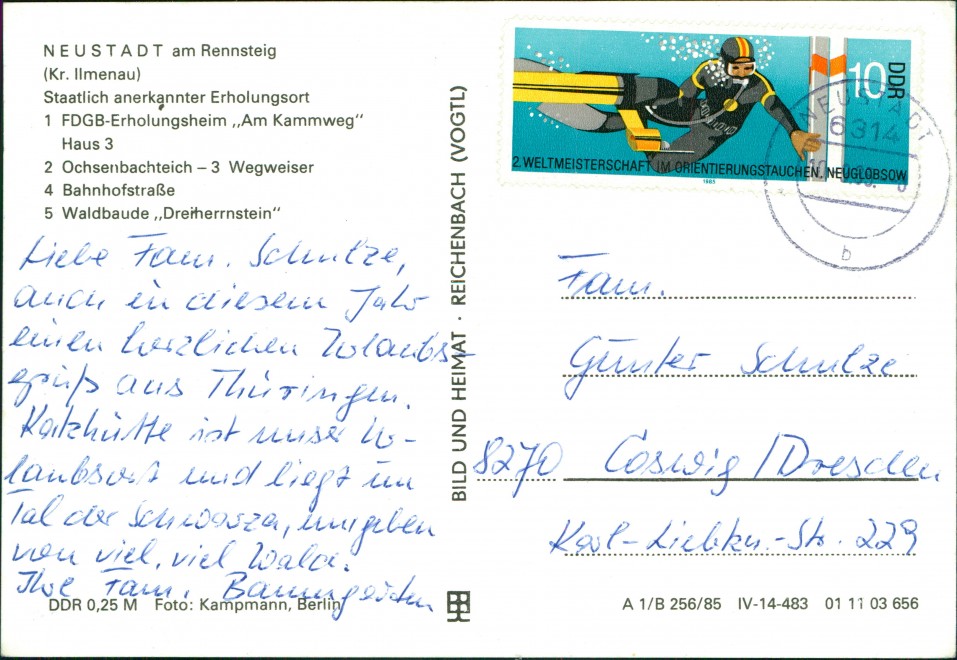 NEUSTADT am Rennsteig
(Kr. Ilmenau)
Staatlich anerkannter Erholungsort
1 FDGB-Erholungsheim „Am Kammweg“
Haus 3
2 Ochsenbachteich – 3 Wegweiser
4 Bahnhofstraße
5 Waldbaude „Dreiherrnstein“
Liebe Fam. Schulze,
auch in diesem Jahr
einen herzlichen Urlaubs-
gruß aus Thüringen.
Katzhütte ist unser Ur-
laubsort und liegt im
Tal der Schwarza, umgeben
von viel, viel Wald.
Ihre Fam. Baumgarten
DDR 0,25 M Foto: Kampmann, Berlin
BILD UND HEIMAT · REICHENBACH (VOGTL)
10 DDR
2. WELTMEISTERSCHAFT IM ORIENTIERUNGSTAUCHEN, NEUGLOBSOW
1985
NEUSTADT
6314
b
Fam.
Günter Schulze
8270 Coswig/Dresden
Karl-Liebkn.-Str. 229
A 1/B 256/85 IV-14-483 01 11 03 656